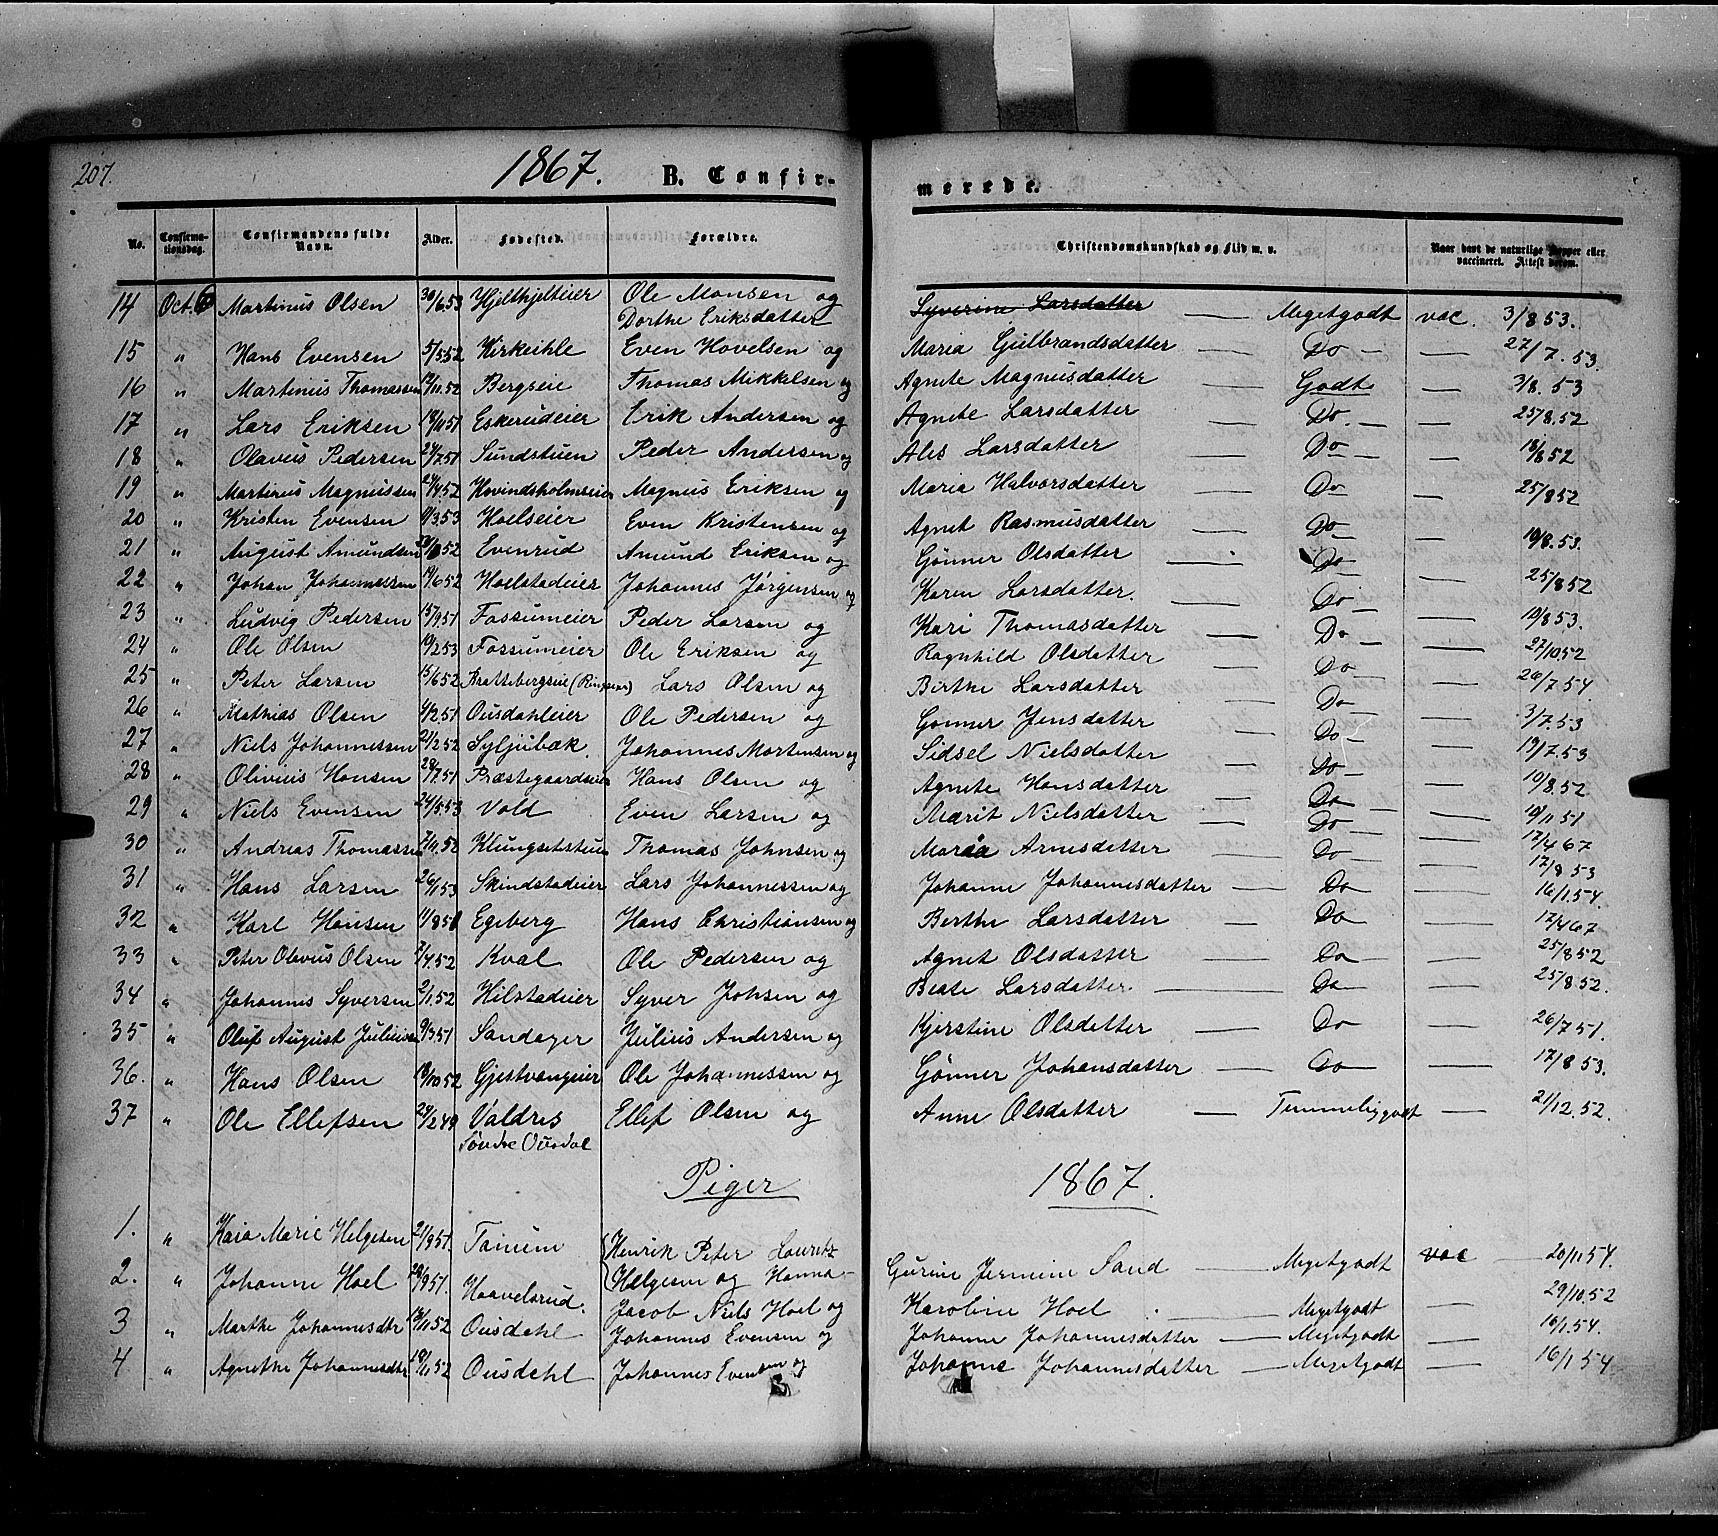 207.
1867.
B. Confirmerede.
No. Confirmationsdag. Confirmandens fulde Navn. Alder. Fødested. Forældre. Christendomskundskab og Flid m. v. Naar havt de naturlige Kopper eller vaccineret. Attest derom.
14 Oct. 6 Martinus Olsen 30/6.53 Hjelthjelteier Ole Monsen og Dorthe Eriksdatter Syverine Larsdatter — Megetgodt vac. 3/8 53.
15 " Hans Evensen 5/5 52 Kirkeihle Even Hovelsen og Maria Gulbrandsdatter — Do — — 27/7. 53.
16 " Martinus Thomassen /11.52 Bergseie Thomas Mikkelsen og Agnete Magnusdatter — Godt — 3/8. 53
17 " Lars Eriksen 18/11 51 Eskerudeier Erik Andersen og Agnete Larsdatter — Do. — — 25/8.52
18 " Olaves Pedersen 24/7 51 Sundstuen Peder Andersen og Ales Larsdatter — Do — — 18/8 52
19 " Martinus Magnussen 24/4.52 Hovindsholmseier Magnus Eriksen og Maria Halvorsdatter — Do — 25/8 52
20 " Kristen Evensen 11/3.53 Hoelseier Even Kristensen og Agnet Rasmusdatter — Do — — 10/8.53.
21 " August Amundsen 52 Evenrud Amund Eriksen og Gønner Olsdatter — Do —
22 " Johan Johannessen 19/6 52 Hoelstadeier Johannes Jørgensen og Karen Larsdatter. — Do — — 25/8 52
23 " Ludvig Pedersen 15/9 51 Fossumeier Peder Larsen og Kari Thomasdatter — Do — — 10/8 53.
24 " Ole Olsen 19/2 53 Fossumeier Ole Eriksen og Ragnhild Olsdatter — Do — 27/10 52
25 " Peter Larsen 15/6 52 Krattebergseie Lars Olsen og Birthe Larsdatter — Do — — 26/7.54
26 " Mathias Olsen 4/2 51 Ousdahleier Ole Pedersen og Gonner Jensdatter — Do — — 3/7.53
27 " Niels Johannessen 21/2 52 Syljubæk. Johannes Mortensen og Sidsel Nielsdatter — Do — — 19/7.53
28 " Olivius Hansen 28/7 51 Præstegaardseier Hans Olsen og Agnete Hansdatter — Do — — 10/8.52
29 " Niels Evensen 24/5 53 Vold Even Larsen og Marit Nielsdatter — Do — — 10/11 51
30 " Andreas Thomassen 7/11.52 Klungsetstuen Thomas Johnsen og Marea Arnesdatter — Do — 17/4 67
31 " Hans Larsen 26/1 53 Skindstadeier Lars Johannessen og Johanne Johannesdatter — Do — 17/8 53
32 " Karl Hansen 11/8 51 Egeberg Hans Christiansen og Berthe Larsdatter — Do — 16/1.54.
33 " Peter Olavus Olsen 7/4.52 Kval Ole Pedersen og Agnet Olsdatter — Do — 17/4 67 25/8 52
34 " Johannes Syversen 2/1.52 Hilstadeier Syver Johsen og Beate Larsdatter — Do — 25/8.52.
35 " Oluf August Juliussen 9/3 51 Sandager Julius Andersen og Kjerstine Olsdatter — Do — 26/7 51.
36. " Hans Olsen 18/10 52 Gjestvangeier Ole Johannessen og Gønner Johansdatter — Do — 17/8 53.
37 " Ole Ellefsen 24/2 49 Valdres Søndre Ousdal Ellef Olsen og Anne Olsdatter — Temmeliggodt — 21/12.52.
Piger
1867.
1. " Kaia Marie Helgesen 21/9 51. Tanum Henrik Peter Lauritz Helgesen og Hanna- Gurine Jermine Sand — Megetgodt vac — 20/11 54.
2. " Johanne Hoel 28/9 51. Haavelsrud. Jacob Niels Hoel og Karoline Hoel — Megetgodt — 29/10.52
3 " Marthe Johannesdtr 18/11 52 Ousdahl Johannes Evensen og Johanne Johannesdatter — Megetgodt — 16/1.54.
4 " Agnethe Johannesdtr 18/11 52 Ousdahl Johannes Evensen og Johanne Johannesdatter — Megetgodt — 16/1 54